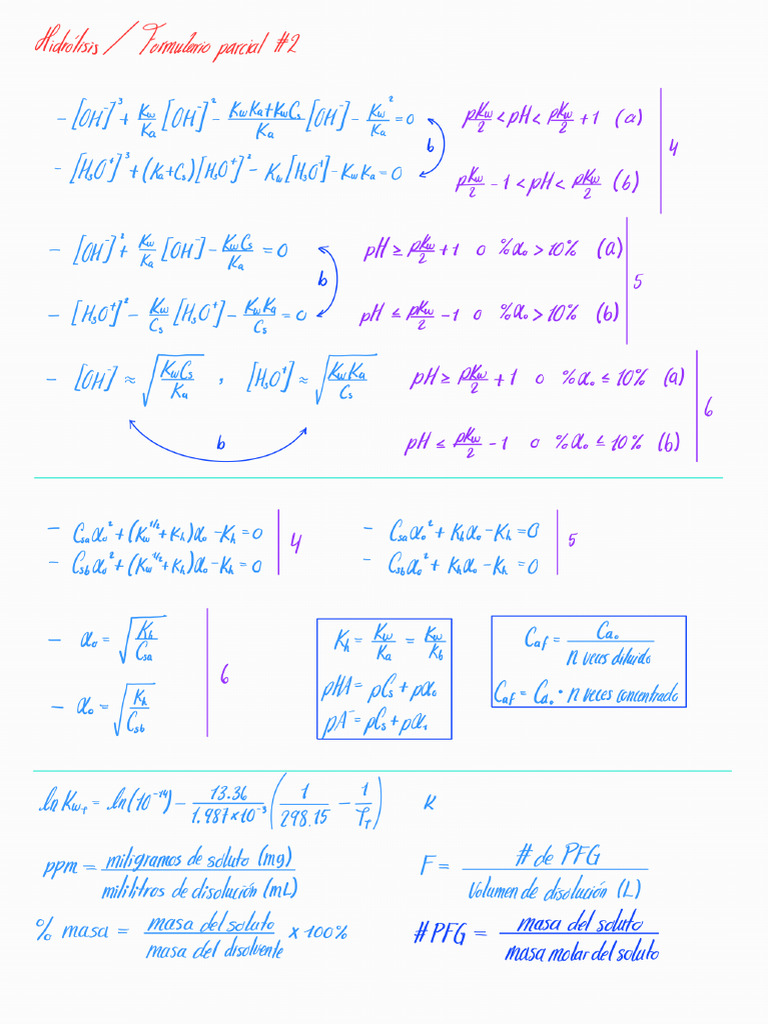 Hidrólisis / Formulario parcial #2
- [OH⁻]³ + Kw/Ka [OH⁻]² - (KwKa+KwCs)/Ka [OH⁻] - Kw²/Ka = 0
b
pKw/2 < pH < pKw/2 + 1 (a)
4
- [H₃O⁺]³ + (Ka+Cs)[H₃O⁺]² - Kw[H₃O⁺] - KwKa = 0
pKw/2 - 1 < pH < pKw/2 (b)
- [OH⁻]² + Kw/Ka [OH⁻] - KwCs/Ka = 0
b
pH ≥ pKw/2 + 1 o %α₀ > 10% (a)
5
- [H₃O⁺]² - Kw/Cs [H₃O⁺] - KwKa/Cs = 0
pH ≤ pKw/2 - 1 o %α₀ > 10% (b)
- [OH⁻] ≈ √(KwCs/Ka) , [H₃O⁺] ≈ √(KwKa/Cs)
b
pH ≥ pKw/2 + 1 o %α₀ ≤ 10% (a)
6
pH ≤ pKw/2 - 1 o %α₀ ≤ 10% (b)
- Csaα₀² + (Kw^1/2 + Kh)α₀ - Kh = 0
- Csbα₀² + (Kw^1/2 + Kh)α₀ - Kh = 0
4
- Csaα₀² + Khα₀ - Kh = 0
- Csbα₀² + Khα₀ - Kh = 0
5
- α₀ = √(Kh/Csa)
- α₀ = √(Kh/Csb)
6
Kh = Kw/Ka = Kw/Kb
pHA = pCs + pα₀
pA⁻ = pCs + pα₁
Caf = Ca₀ / n veces diluido
Caf = Ca₀ • n veces concentrado
ln KwT = ln(10⁻¹⁴) - 13.36/1.987×10⁻³ (1/298.15 - 1/TT) K
ppm = miligramos de soluto (mg) / mililitros de disolución (mL)
F = # de PFG / Volumen de disolución (L)
% masa = masa del soluto / masa del disolvente × 100%
#PFG = masa del soluto / masa molar del soluto